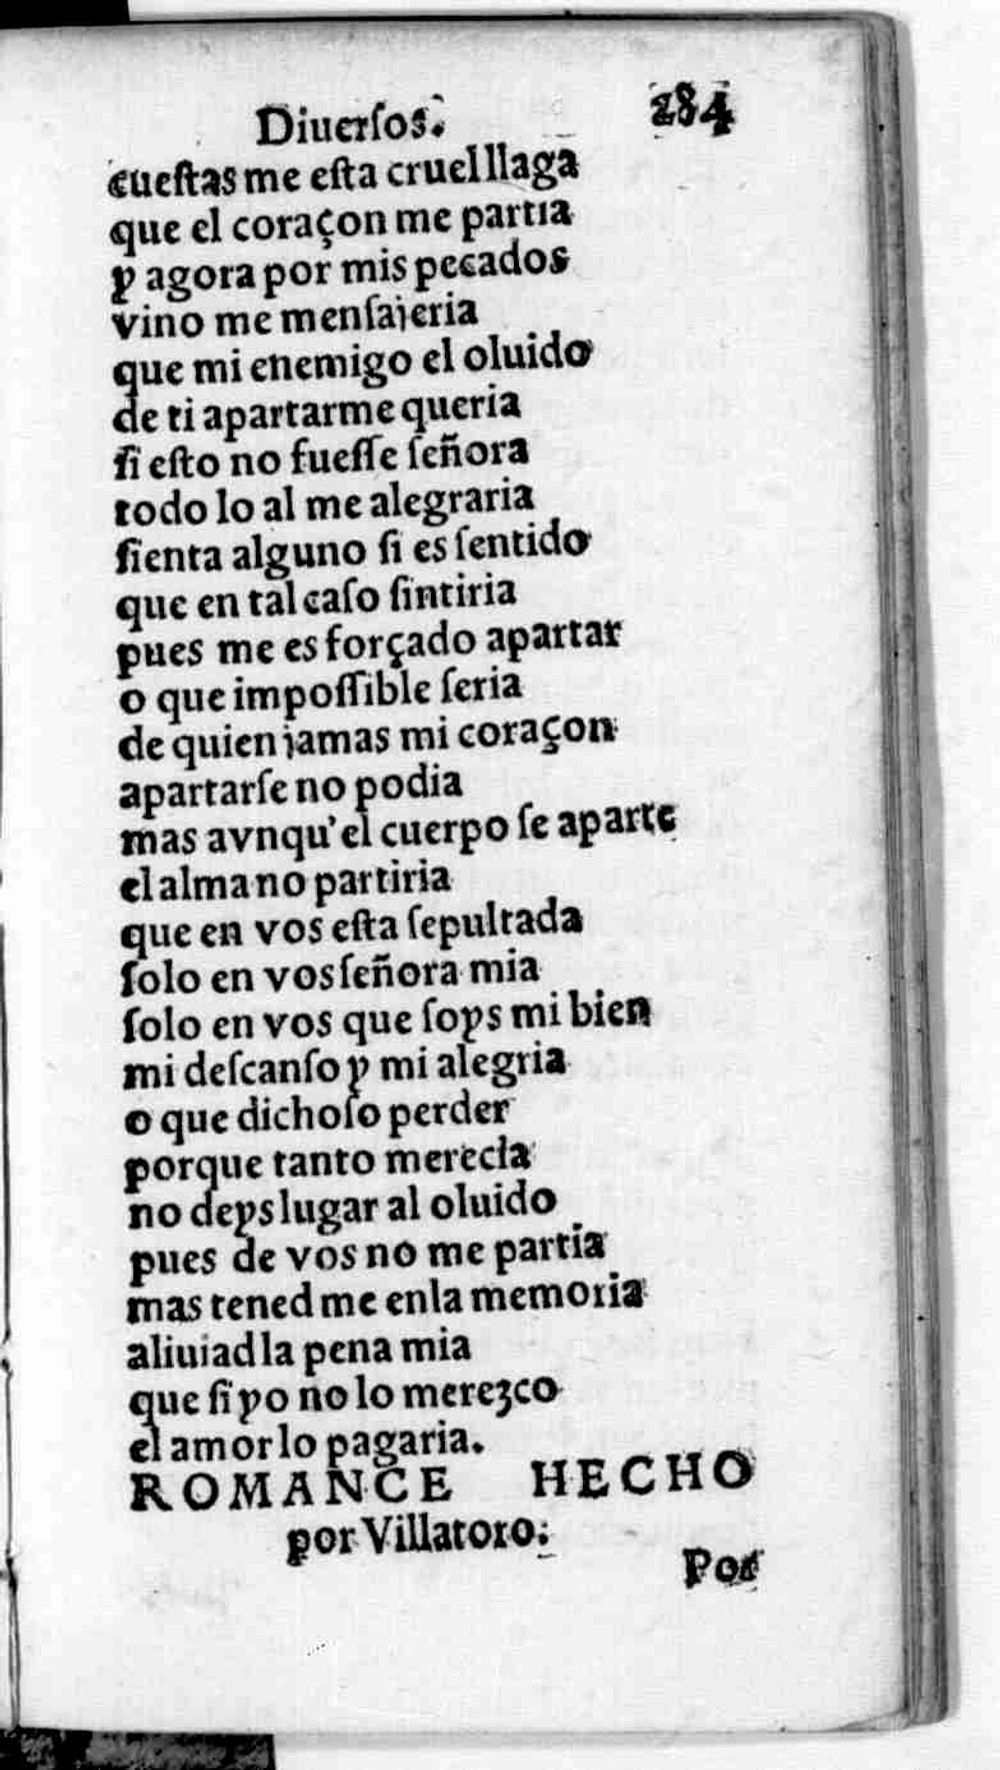 Diuerſos. 284
cueſtas me eſta cruel llaga
que el coraçon me partia
y agora por mis pecados
vino me menſajeria
que mi enemigo el oluido
de ti apartarme queria
ſi eſto no fueſſe ſeñora
todo lo al me alegraria
ſienta alguno ſi es ſentido
que en tal caſo ſintiria
pues me es forçado apartar
o que impoſſible ſeria
de quien jamas mi coraçon
apartarſe no podia
mas avnqu'el cuerpo ſe aparte
el alma no partiria
que en vos eſta ſepultada
ſolo en vos ſeñora mia
ſolo en vos que ſoys mi bien
mi deſcanſo y mi alegria
o que dichoſo perder
porque tanto merecia
no deys lugar al oluido
pues de vos no me partia
mas tened me enla memoria
aliuiad la pena mia
que ſi yo no lo merezco
el amor lo pagaria.
ROMANCE HECHO
por Villatoro.
Por